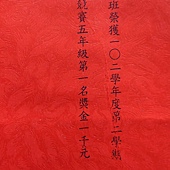 班榮獲一〇二學年度第二學期
競賽五年級第一名獎金一千元